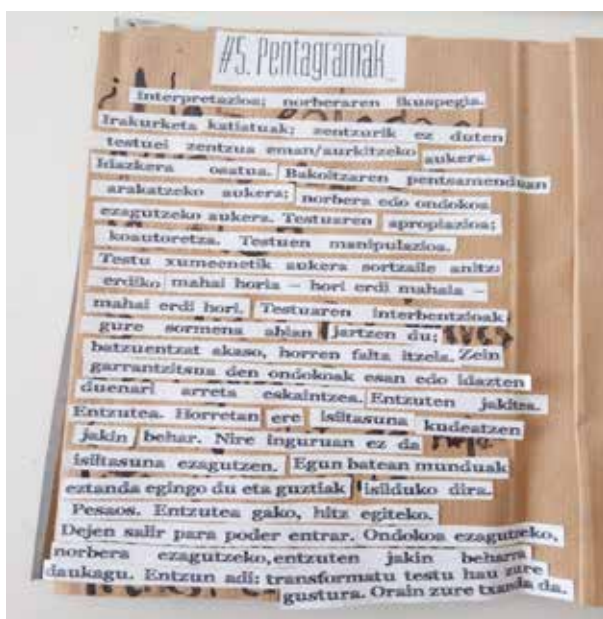 #5. Pentagramak
interpretazioa; norberaren ikuspegia.
Irakurketa katiatuak; zentzurik ez duten
testuei zentzua eman/aurkitzeko aukera.
Idazkera osatua. Bakoitzaren pentsamenduan
arakatzeko aukera; norbera edo ondokoa
ezagutzeko aukera. Testuaren apropiazioa;
koautoretza. Testuen manipulazioa.
Testu xumeenetik aukera sortzaile anitz:
erdiko mahai horia – hori erdi mahaia –
mahai erdi hori. Testuaren interbentzioak
gure sormena abian jartzen du;
batzuentzat akaso, horren falta itzela. Zein
garrantzitsua den ondokoak esan edo idazten
duenari arreta eskaintzea. Entzuten jakitea.
Entzutea. Horretan ere isiltasuna kudeatzen
jakin behar. Nire inguruan ez da
isiltasuna ezagutzen. Egun batean munduak
eztanda egingo du eta guztiak isilduko dira.
Pesaos. Entzutea gako, hitz egiteko.
Dejen salir para poder entrar. Ondokoa ezagutzeko,
norbera ezagutzeko, entzuten jakin beharra
daukagu. Entzun adi: transformatu testu hau zure
gustura. Orain zure txanda da.